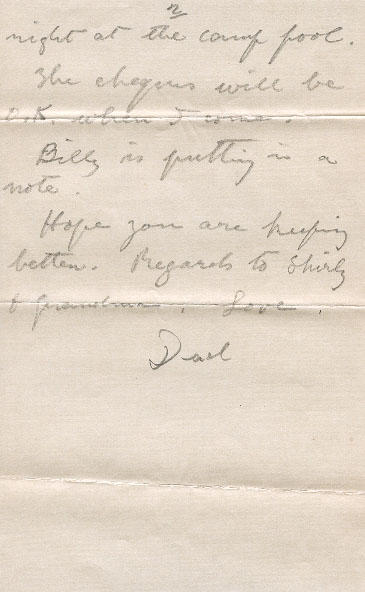 2
night at the camp pool.
The cheques will be
O.K when I come.
Billy is putting in a
note.
Hope you are keeping
better. Regards to Shirly
& Grandma. Love,
Dad